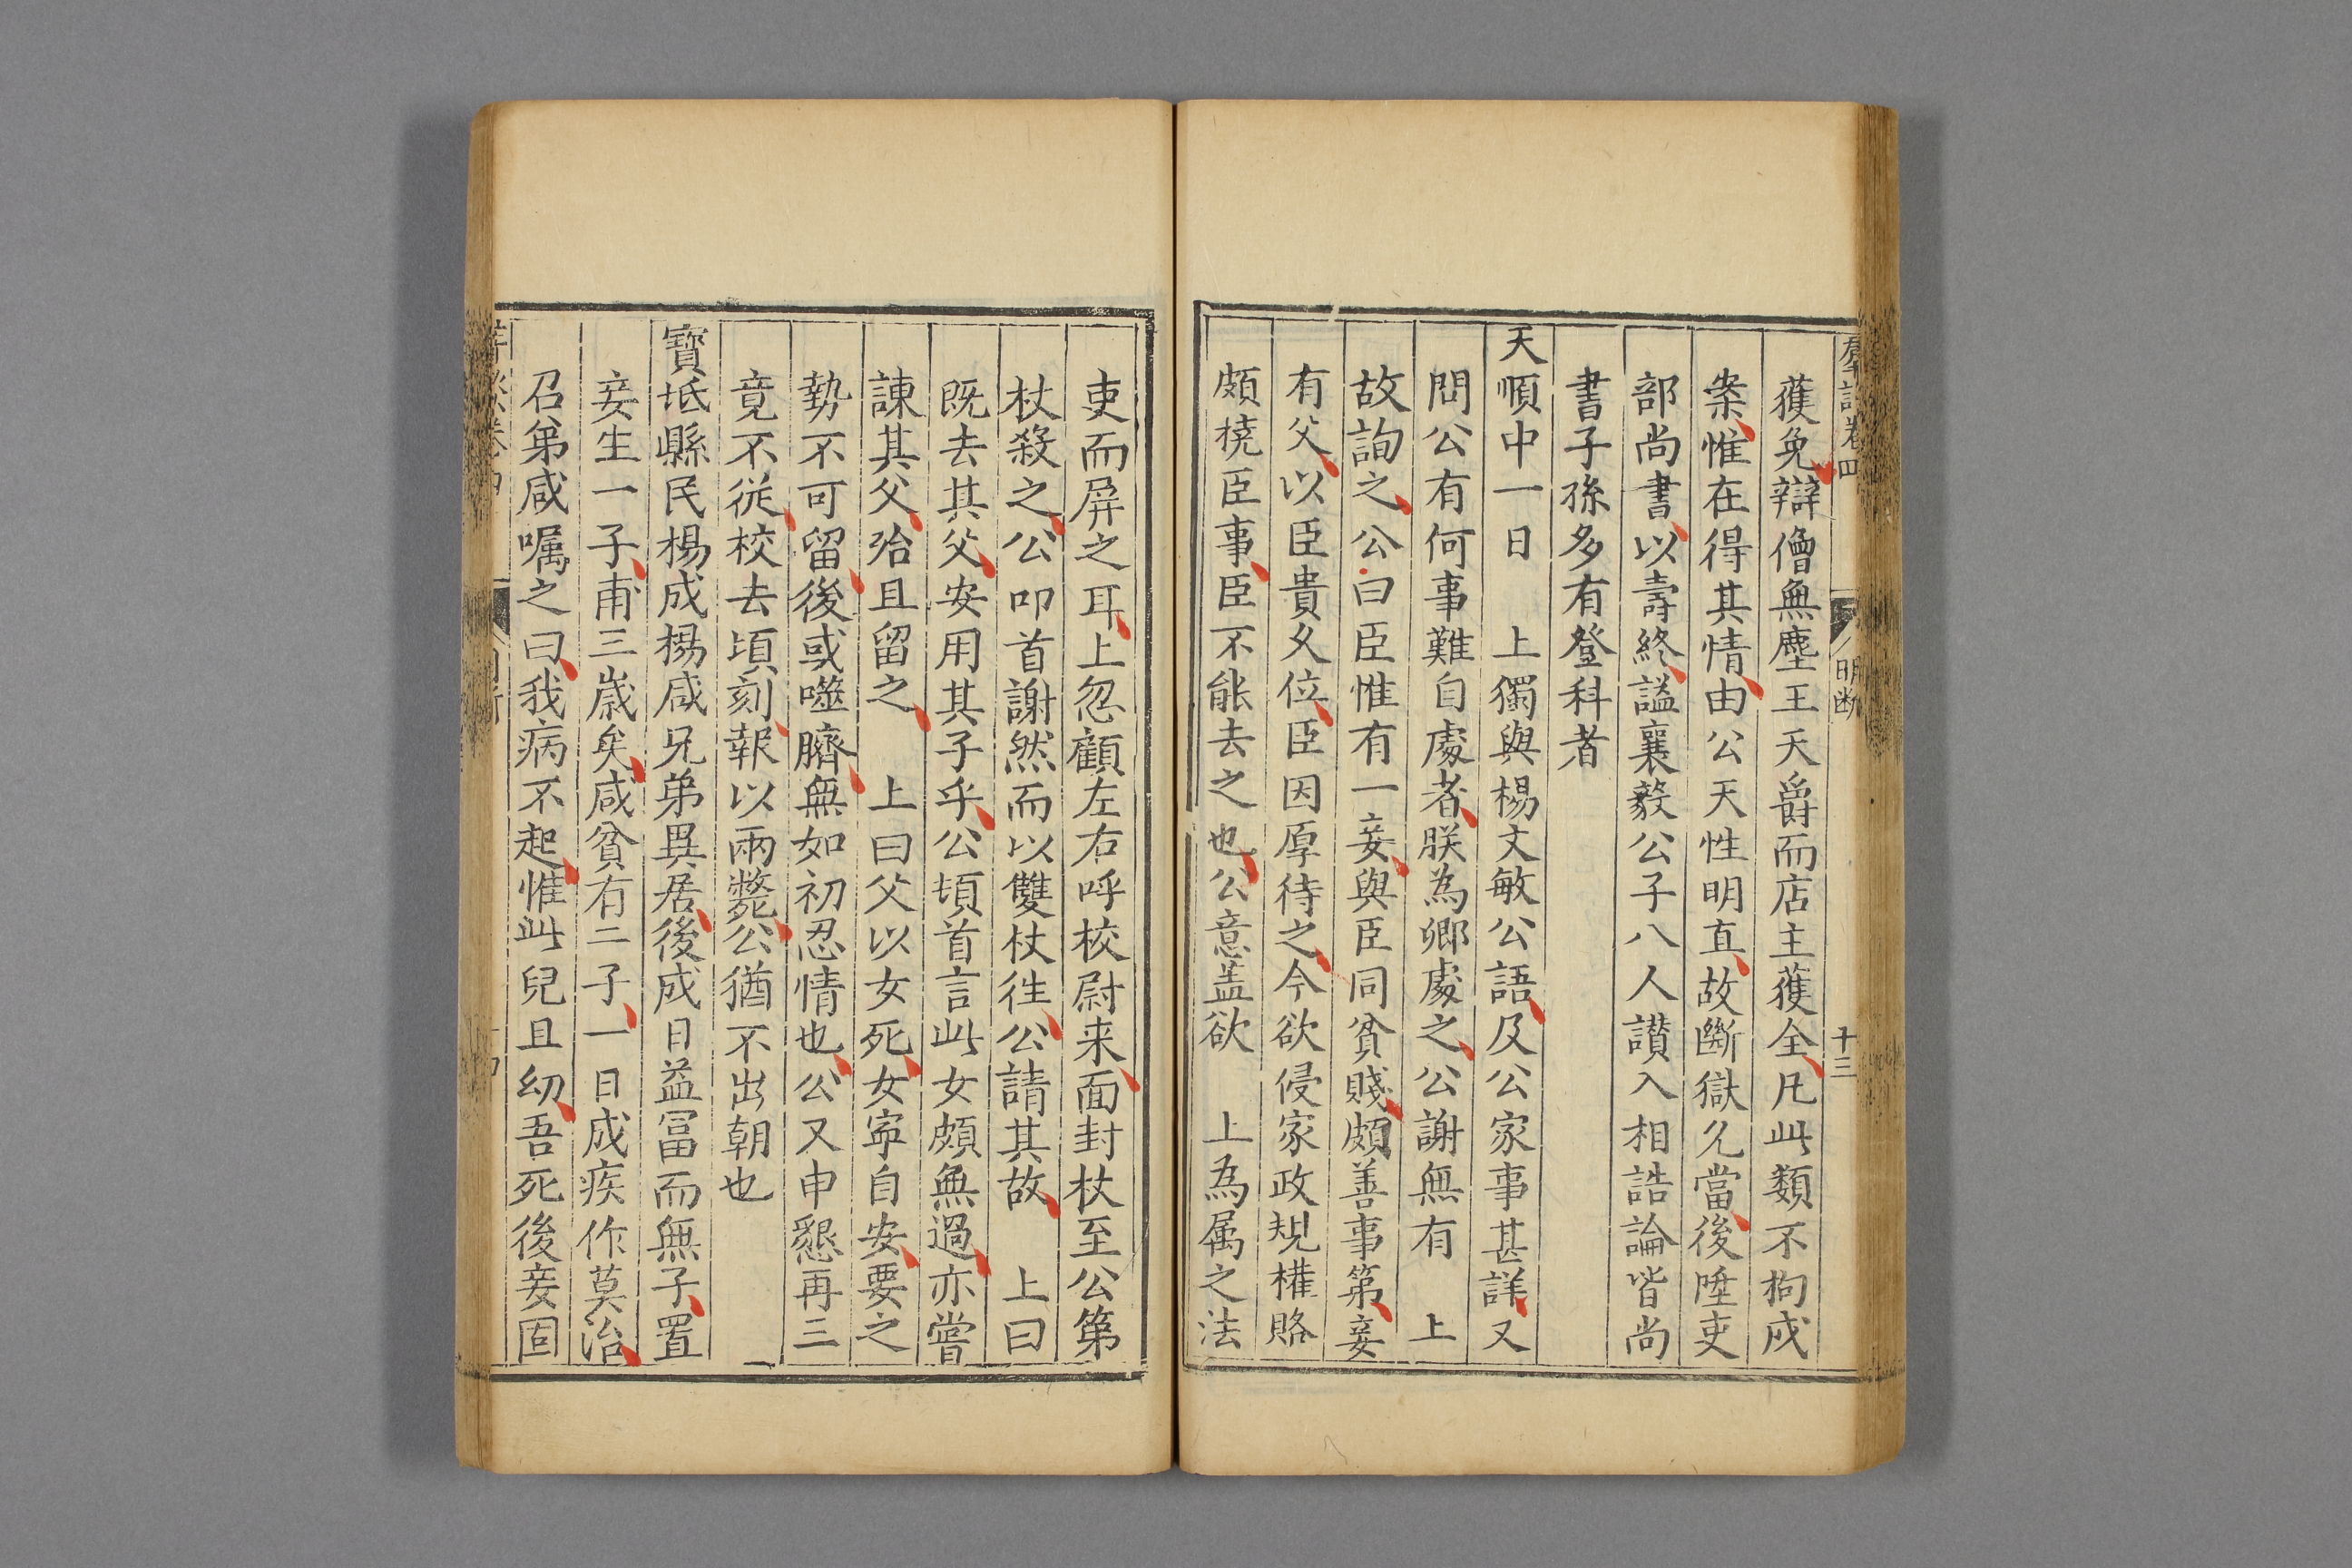 羣談卷四 明断 十三
獲免辯僧無塵王天爵而店主獲全凡此類不拘成
案惟在得其情由公天性明直故斷獄允當後陞吏
部尚書以壽終謚襄毅公子八人讃入相誥論皆尚
書子孫多有登科者
天順中一日 上獨與楊文敏公語及公家事甚詳又
問公有何事難自處者朕為卿處之公謝無有 上
故詢之公曰臣惟有一妾與臣同貧賤頗善事第妾
有父以臣貴久位臣因厚待之今欲侵家政規權賂
頗橈臣事臣不能去之也公意盖欲 上為属之法
吏而屏之耳上忽顧左右呼校尉来面封杖至公第
杖殺之公叩首謝然而以雙杖徃公請其故 上曰
既去其父安用其子乎公頃首言此女頗無過亦嘗
諫其父殆且留之 上曰父以女死女寜自安要之
勢不可留後或噬臍無如初忍情也公又申懇再三
竟不從校去頃刻報以兩斃公猶不出朝也
寶坻縣民楊成楊咸兄弟異居後成日益冨而無子置
妾生一子甫三歳矣咸貧有二子一日成疾作莫治
召弟咸嘱之曰我病不起惟此兒且幼吾死後妾固